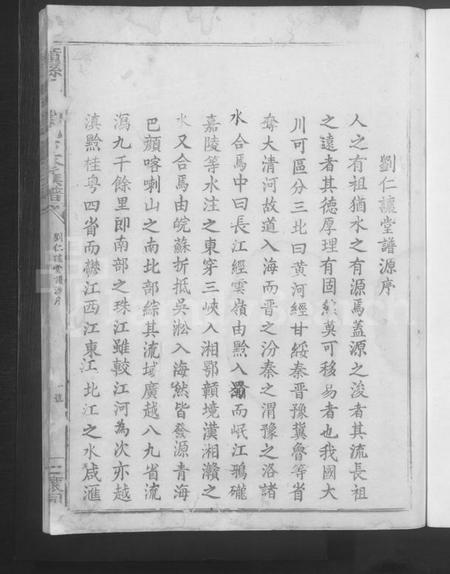 劉仁讓堂譜源序
人之有祖猶水之有源焉蓋源之浚者其流長祖
之遠者其德厚理有固然莫可移易者也我國大
川可區分三北曰黄河經甘綏秦晉豫冀魯等省
奪大清河故道入海而晋之汾秦之渭豫之洛諸
水合焉中曰長江經雲嶺由黔入蜀而岷江鴉礲
嘉陵等水注之東穿三峽入湘鄂贛境漢湘灨之
水又合焉由皖蘇折抵吳淞入海然皆發源青海
巴顔喀喇山之南北部綜其流域廣越八九省流
瀉九千餘里即南部之珠江雖較江河為次亦越
滇黔桂粤四省而欎江西江東江北江之水咸滙
劉仁讓堂譜源序
一號